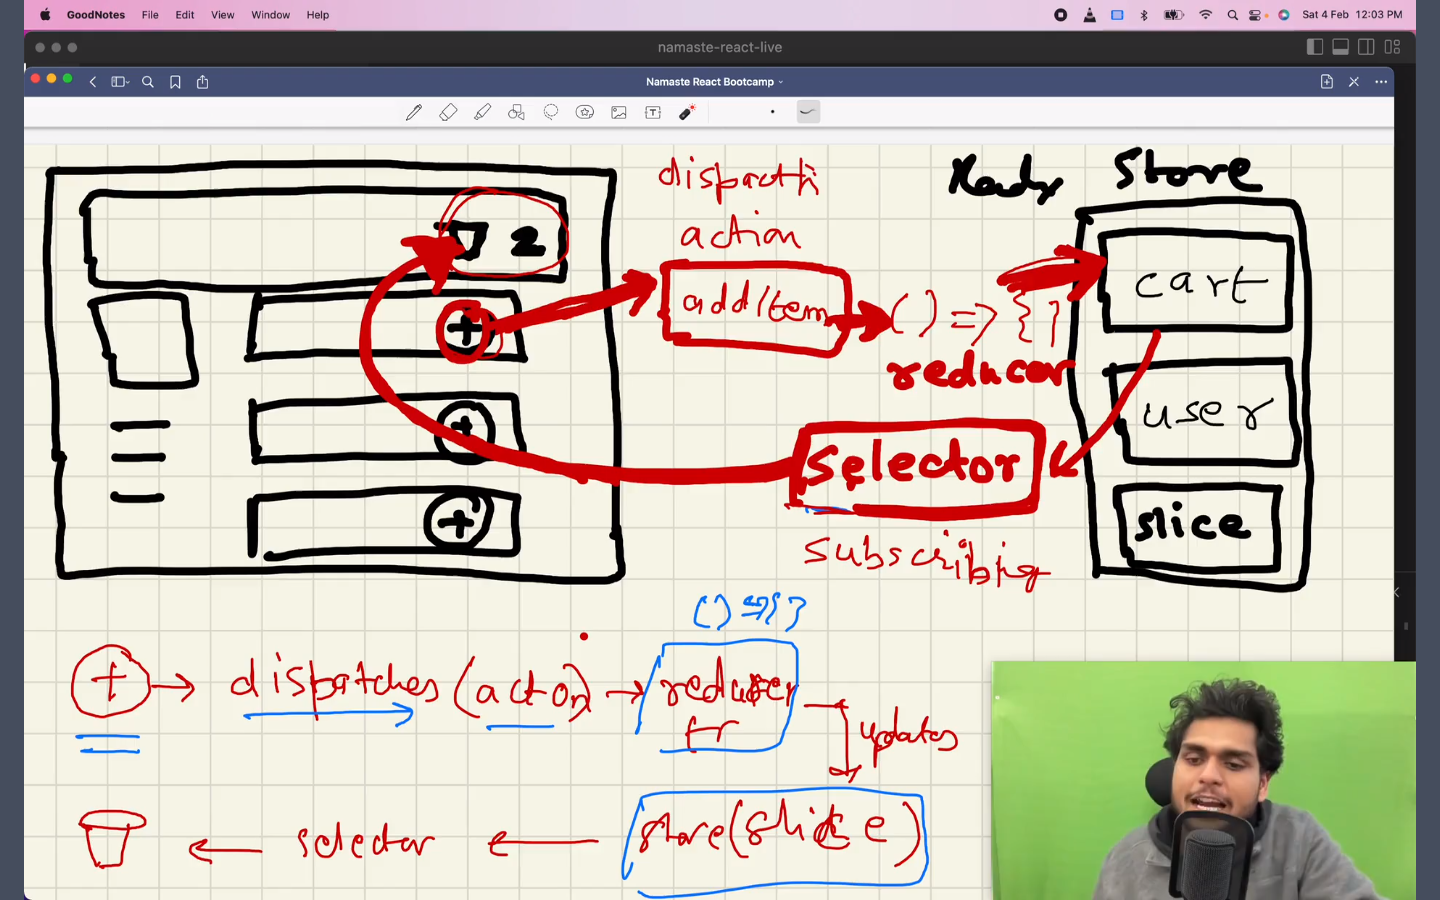 GoodNotes File Edit View Window Help
Sat 4 Feb 12:03 PM
namaste-react-live
Namaste React Bootcamp
T
2
+
+
+
action
addItem
() => {}
reducer
Store
cart
user
slice
selector
subscribing
() => {}
+ → dispatches (action) → reducer
updates
store(slice)
← selector ←